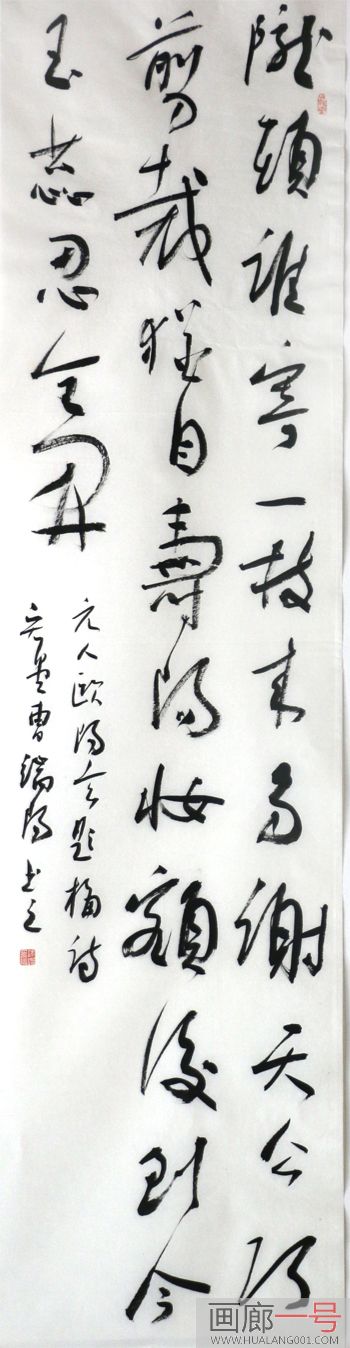 隴頭誰寄一枝來多謝天公巧
剪裁猶自壽陽妝額後到今
玉蕊忍全開
元人歐陽玄題梅詩
曹端陽書之
画廊一号
WWW.HUALANG001.COM